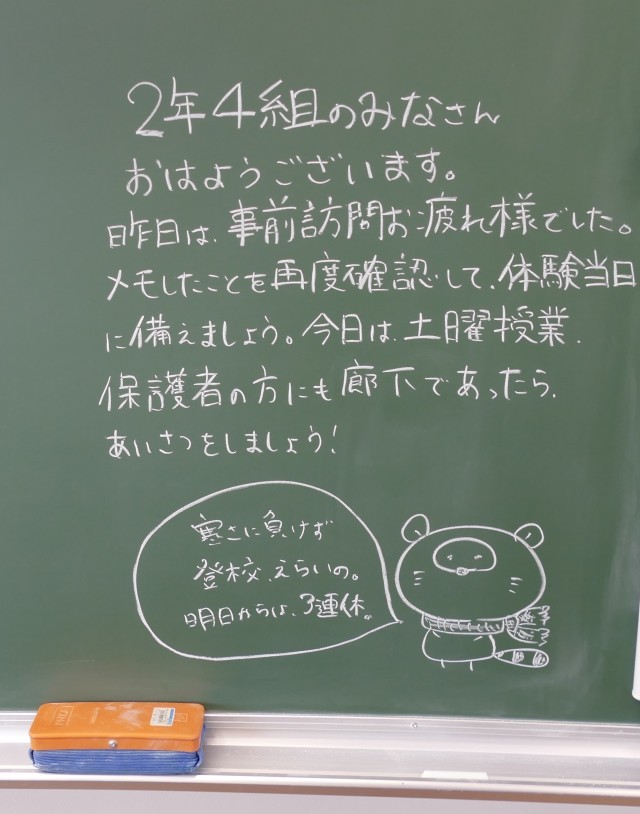 2年4組のみなさん
おはようございます。
昨日は、事前訪問お疲れ様でした。
メモしたことを再度確認して、体験当日
に備えましょう。今日は、土曜授業、
保護者の方にも廊下であったら、
あいさつをしましょう!
寒さに負けず
登校、えらいの。
明日からは、3連休。